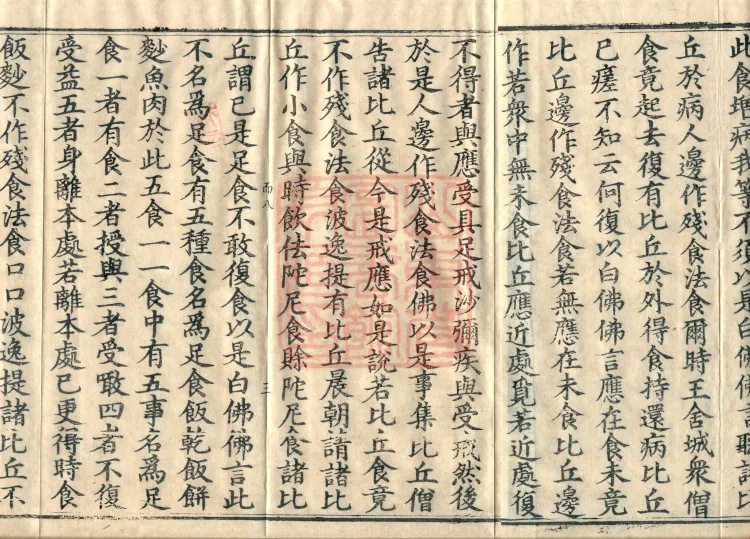 病我等不須以是白佛佛言聽諸比
丘於病人邊作殘食法食爾時王舍城衆僧
食竟起去復有比丘於外得食持還病比丘
已瘥不知云何復以白佛佛言應在食未竟
比丘邊作殘食法食若無應在未食比丘邊
作若衆中無未食比丘應近處覓若近處復
不得者與應受具足戒沙彌疾與受戒然後
於是人邊作殘食法食佛以是事集比丘僧
告諸比丘從今是戒應如是說若比丘食竟
不作殘食法食波逸提有比丘晨朝請諸比
丘作小食與時飲佉陀尼食賖陀尼食諸比
而八 三
丘謂已是足食不敢復食以是白佛佛言此
不名爲足食有五種食名爲足食飯乾飯餅
麨魚肉於此五食一一食中有五事名爲足
食一者有食二者授與三者受噉四者不復
受益五者身離本處若離本處已更得時食
飯麨不作殘食法食口口波逸提諸比丘不